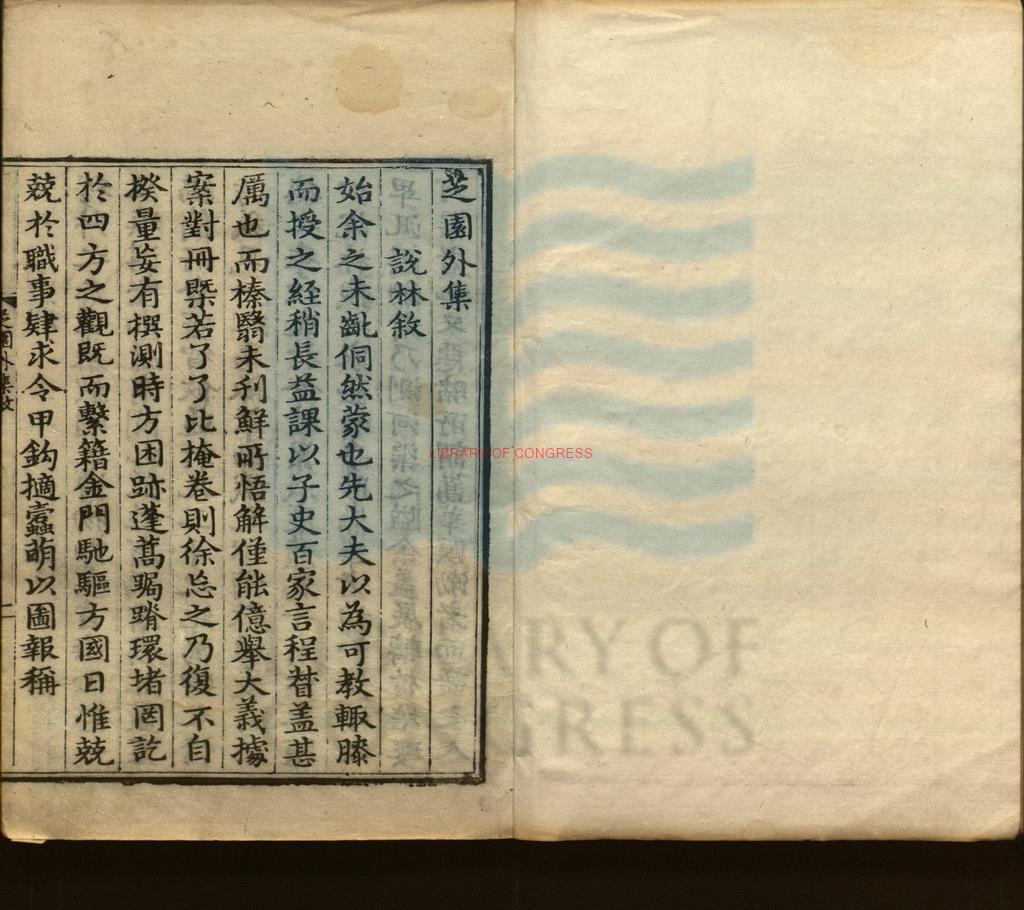 芝園外集
說林敘
始余之未齔侗然蒙也先大夫以為可教輙膝
而授之經稍長益課以子史百家言程督盖甚
厲也而榛翳未刋鮮所悟解僅能億舉大義據
案對冊槩若了了比掩卷則徐忘之乃復不自
揆量妄有撰測時方困跡蓬蒿跼蹐環堵罔訖
於四方之觀既而繫籍金門馳驅方國日惟兢
兢於職事肄求令甲鈎擿蠹萌以圖報稱
芝園外集敘
一
LIBRARY OF CONGRESS
LIBRARY OF
CONGRESS